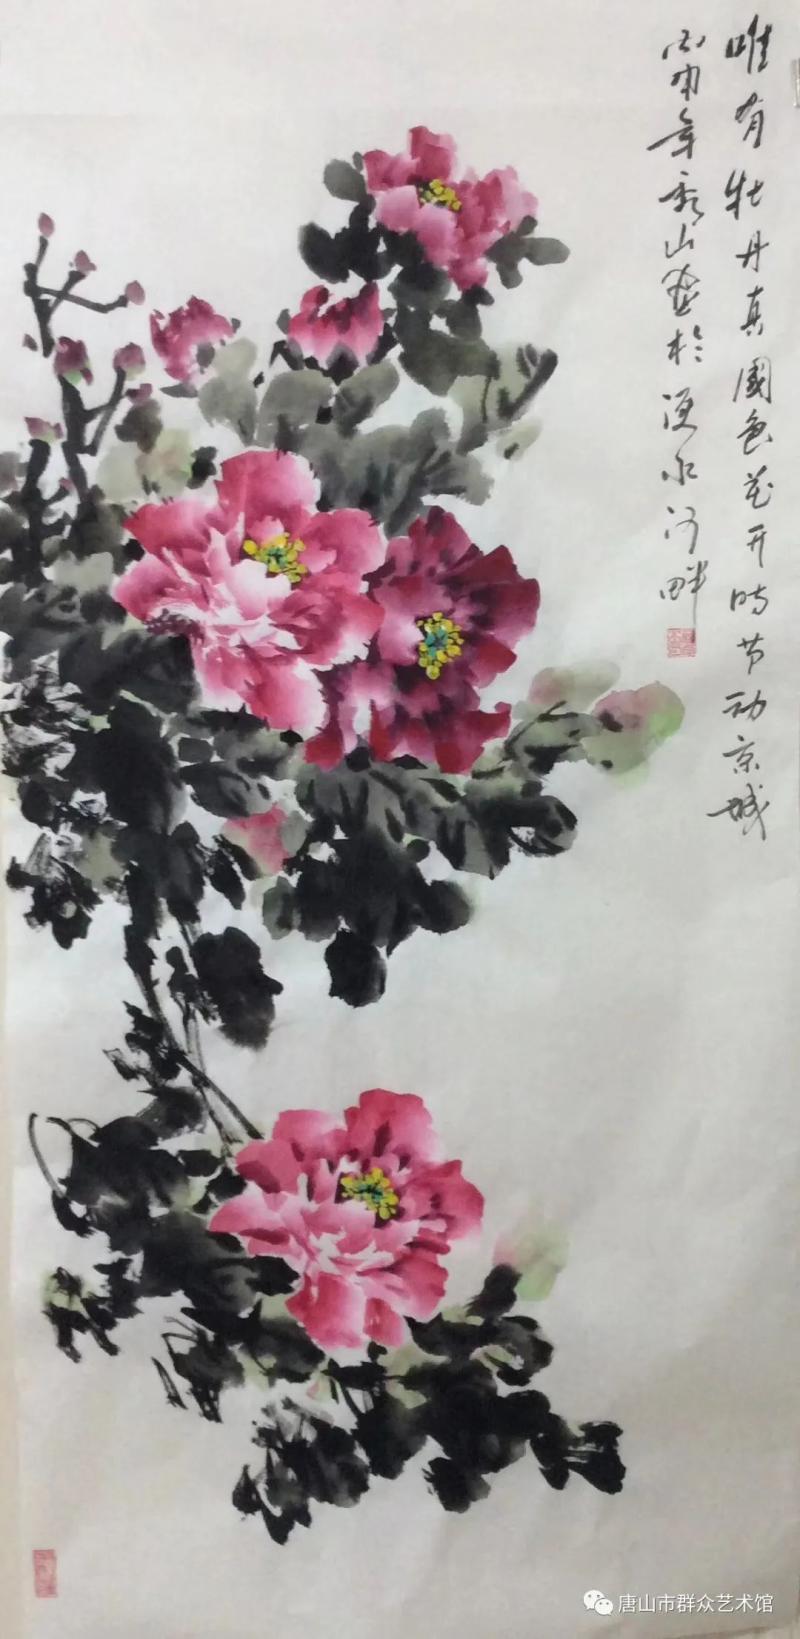 唯有牡丹真國色花开时节动京城
丙申年秀山画於还水河畔
唐山市群众艺术馆